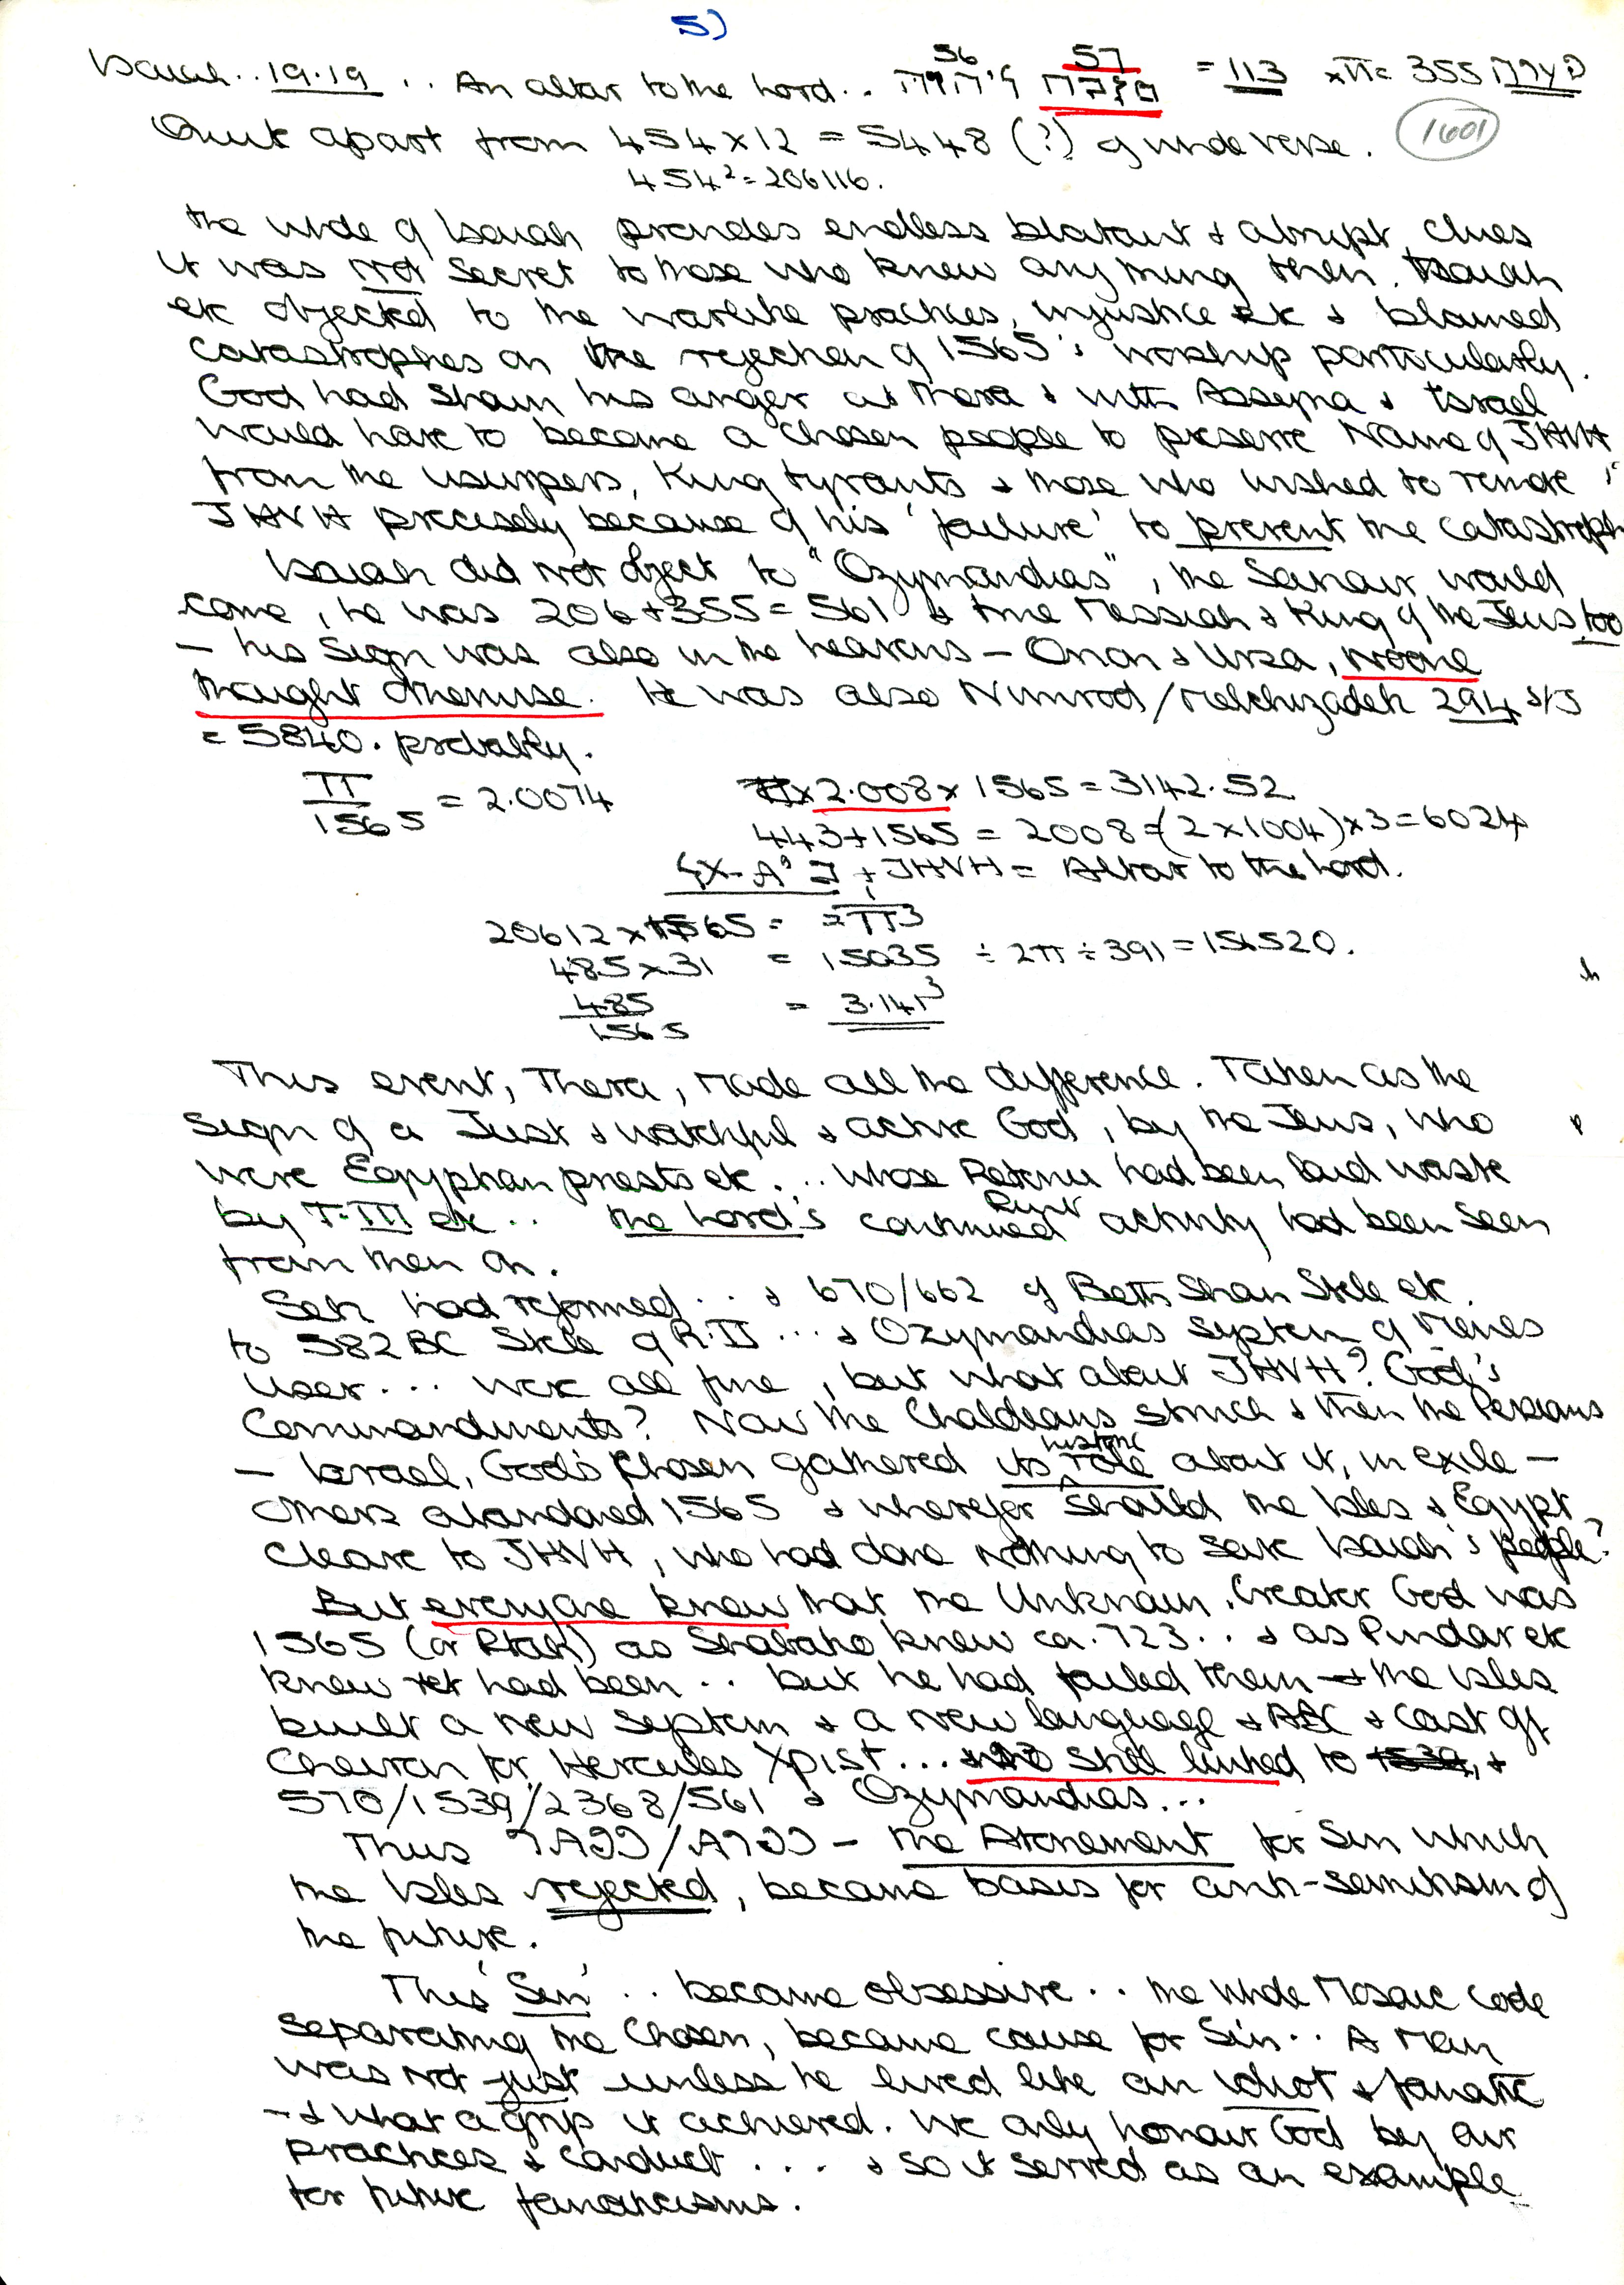 5)
56 57
Isaiah.. 19.19 .. An altar to the Lord.. = 113 xπ= 355
Quite apart from 454x12 = 5448 (?) of whole verse. 1601
454² = 206116.
the whole of Isaiah provides endless blatant & abrupt clues
it was not secret to those who knew anything then. Isaiah
etc objected to the warlike practices, injustice etc & blamed
catastrophes on the rejection of 1565's worship particularly.
God had shown his anger at Thera & with Assyria & Israel
would have to become a chosen people to preserve Name of JHVH
from the usurpers, King tyrants & those who wished to remove
JHVH precisely because of his 'failure' to prevent the catastroph
Isaiah did not object to "Ozymandias", the Saviour would
come, he was 206+355=561 & true Messiah & King of the Jews too
– his sign was also in the heavens – Orion & Ursa, noone
thought otherwise. He was also Nimrod/Melchizadek 294
= 5840. probably.
π/1565 = 2.0074 x 2.008 x 1565 = 3142.52
443+1565 = 2008 = (2x1004)x3 = 6024
+ JHVH = Altar to the Lord.
20612 x 1565 = = π3
485x31 = 15035 ÷ 2π ÷ 391 =
485/1565 = 3.141³
This event, Thera, made all the difference. Taken as the
sign of a Just & watchful & active God, by the Jews, who
were Egyptian priests etc... whose Retenu had been laid waste
by T.III etc.. the Lord's continued activity had been seen
from then on.
Seti had reformed.. & 670/662 of Beth Shan Stele etc.
to 582BC Stele of R.II ... & Ozymandias system of Menes
User... were all fine, but what about JHVH? God's
Commandments? Now the Chaldeans struck & then the Persians
– Israel, God's chosen gathered its historic role about it, in exile –
Others abandoned 1565 & wherefor should the Isles & Egypt
cleave to JHVH, who had done nothing to save Isaiah's people?
But everyone knew that the Unknown, Greater God was
1565 (or Ptah) as Shabako knew ca. 723.. & as Pindar etc
knew had been.. but he had failed them – the Isles
built a new system & a new language & ABC & cast off
Cheiron for Hercules Xpist... still linked to 1539, &
570/1539/2368/561 & Ozymandias...
Thus – the Atonement for Sin which
the Isles rejected, became basis for anti-semitism of
the future.
This 'Sin'.. became obsessive.. the whole Mosaic Code
separating the Chosen, became cause for Sin.. A man
was not just unless he lived like an idiot & fanatic
– & what a grip it achieved. We only honour God by our
practices & conduct .... & so it served as an example
for future fanaticisms.